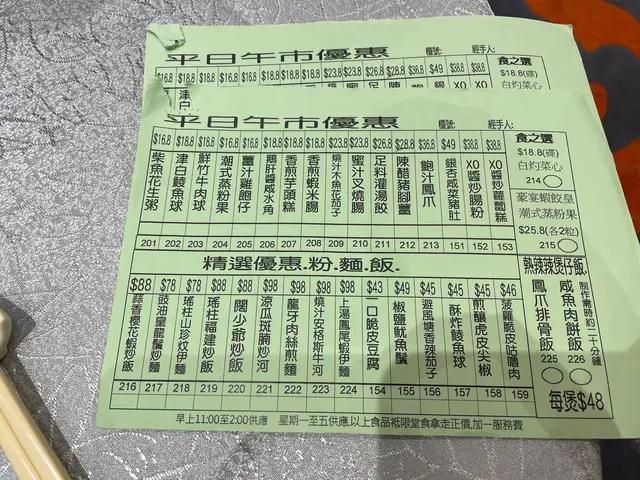 平日午市優惠
檯號: 經手人:
$16.8 $18.8 $18.8 $16.8 $16.8 $18.8 $18.8 $18.8 $23.8 $23.8 $26.8 $28.8 $36.8 $49 $38.8 $38.8
食之選
$18.8(碟)
白灼菜心
平日午市優惠
檯號: 經手人:
$16.8 柴魚花生粥 201
$18.8 津白鯪魚球 202
$18.8 鮮竹牛肉球 203
$16.8 潮式蒸粉果 204
$16.8 薑汁雞飽仔 205
$18.8 鵝肝醬咸水角 206
$18.8 香煎芋頭糕 207
$18.8 香煎蝦米腸 208
$23.8 燒汁木魚花茄子 209
$23.8 蜜汁叉燒腸 210
$26.8 足料灌湯餃 211
$28.8 陳醋豬腳薑 212
$36.8 鮑汁鳳爪 213
$49 銀杏咸菜豬肚 151
$38.8 XO醬炒腸粉 152
$38.8 XO醬炒蘿蔔糕 153
食之選
$18.8(碟)
白灼菜心
214
豪宴蝦餃皇
潮式蒸粉果
$25.8(各2粒)
215
精選優惠.粉.麵.飯.
$88 蒜香櫻花蝦炒飯 216
$78 豉油皇龍鬚炒麵 217
$78 瑤柱山珍炆伊麵 218
$98 瑤柱福建炒飯 219
$88 闊少爺炒飯 220
$98 涼瓜斑腩炒河 221
$98 龍牙肉絲煎麵 222
$98 燒汁安格斯牛河 223
$98 上湯鳳尾蝦伊麵 224
$43 一口脆皮豆腐 154
$49 椒鹽魷魚鬚 155
$45 避風塘香辣茄子 156
$45 酥炸鯪魚球 157
$45 煎釀虎皮尖椒 158
$46 菠蘿脆皮咕嚕肉 159
熱辣辣煲仔飯
鳳爪排骨飯
225
咸魚肉餅飯
226
制作需時約二十分鐘
每煲$48
早上11:00至2:00供應 星期一至五供應,以上食品衹限堂食拿走正價,加一服務費